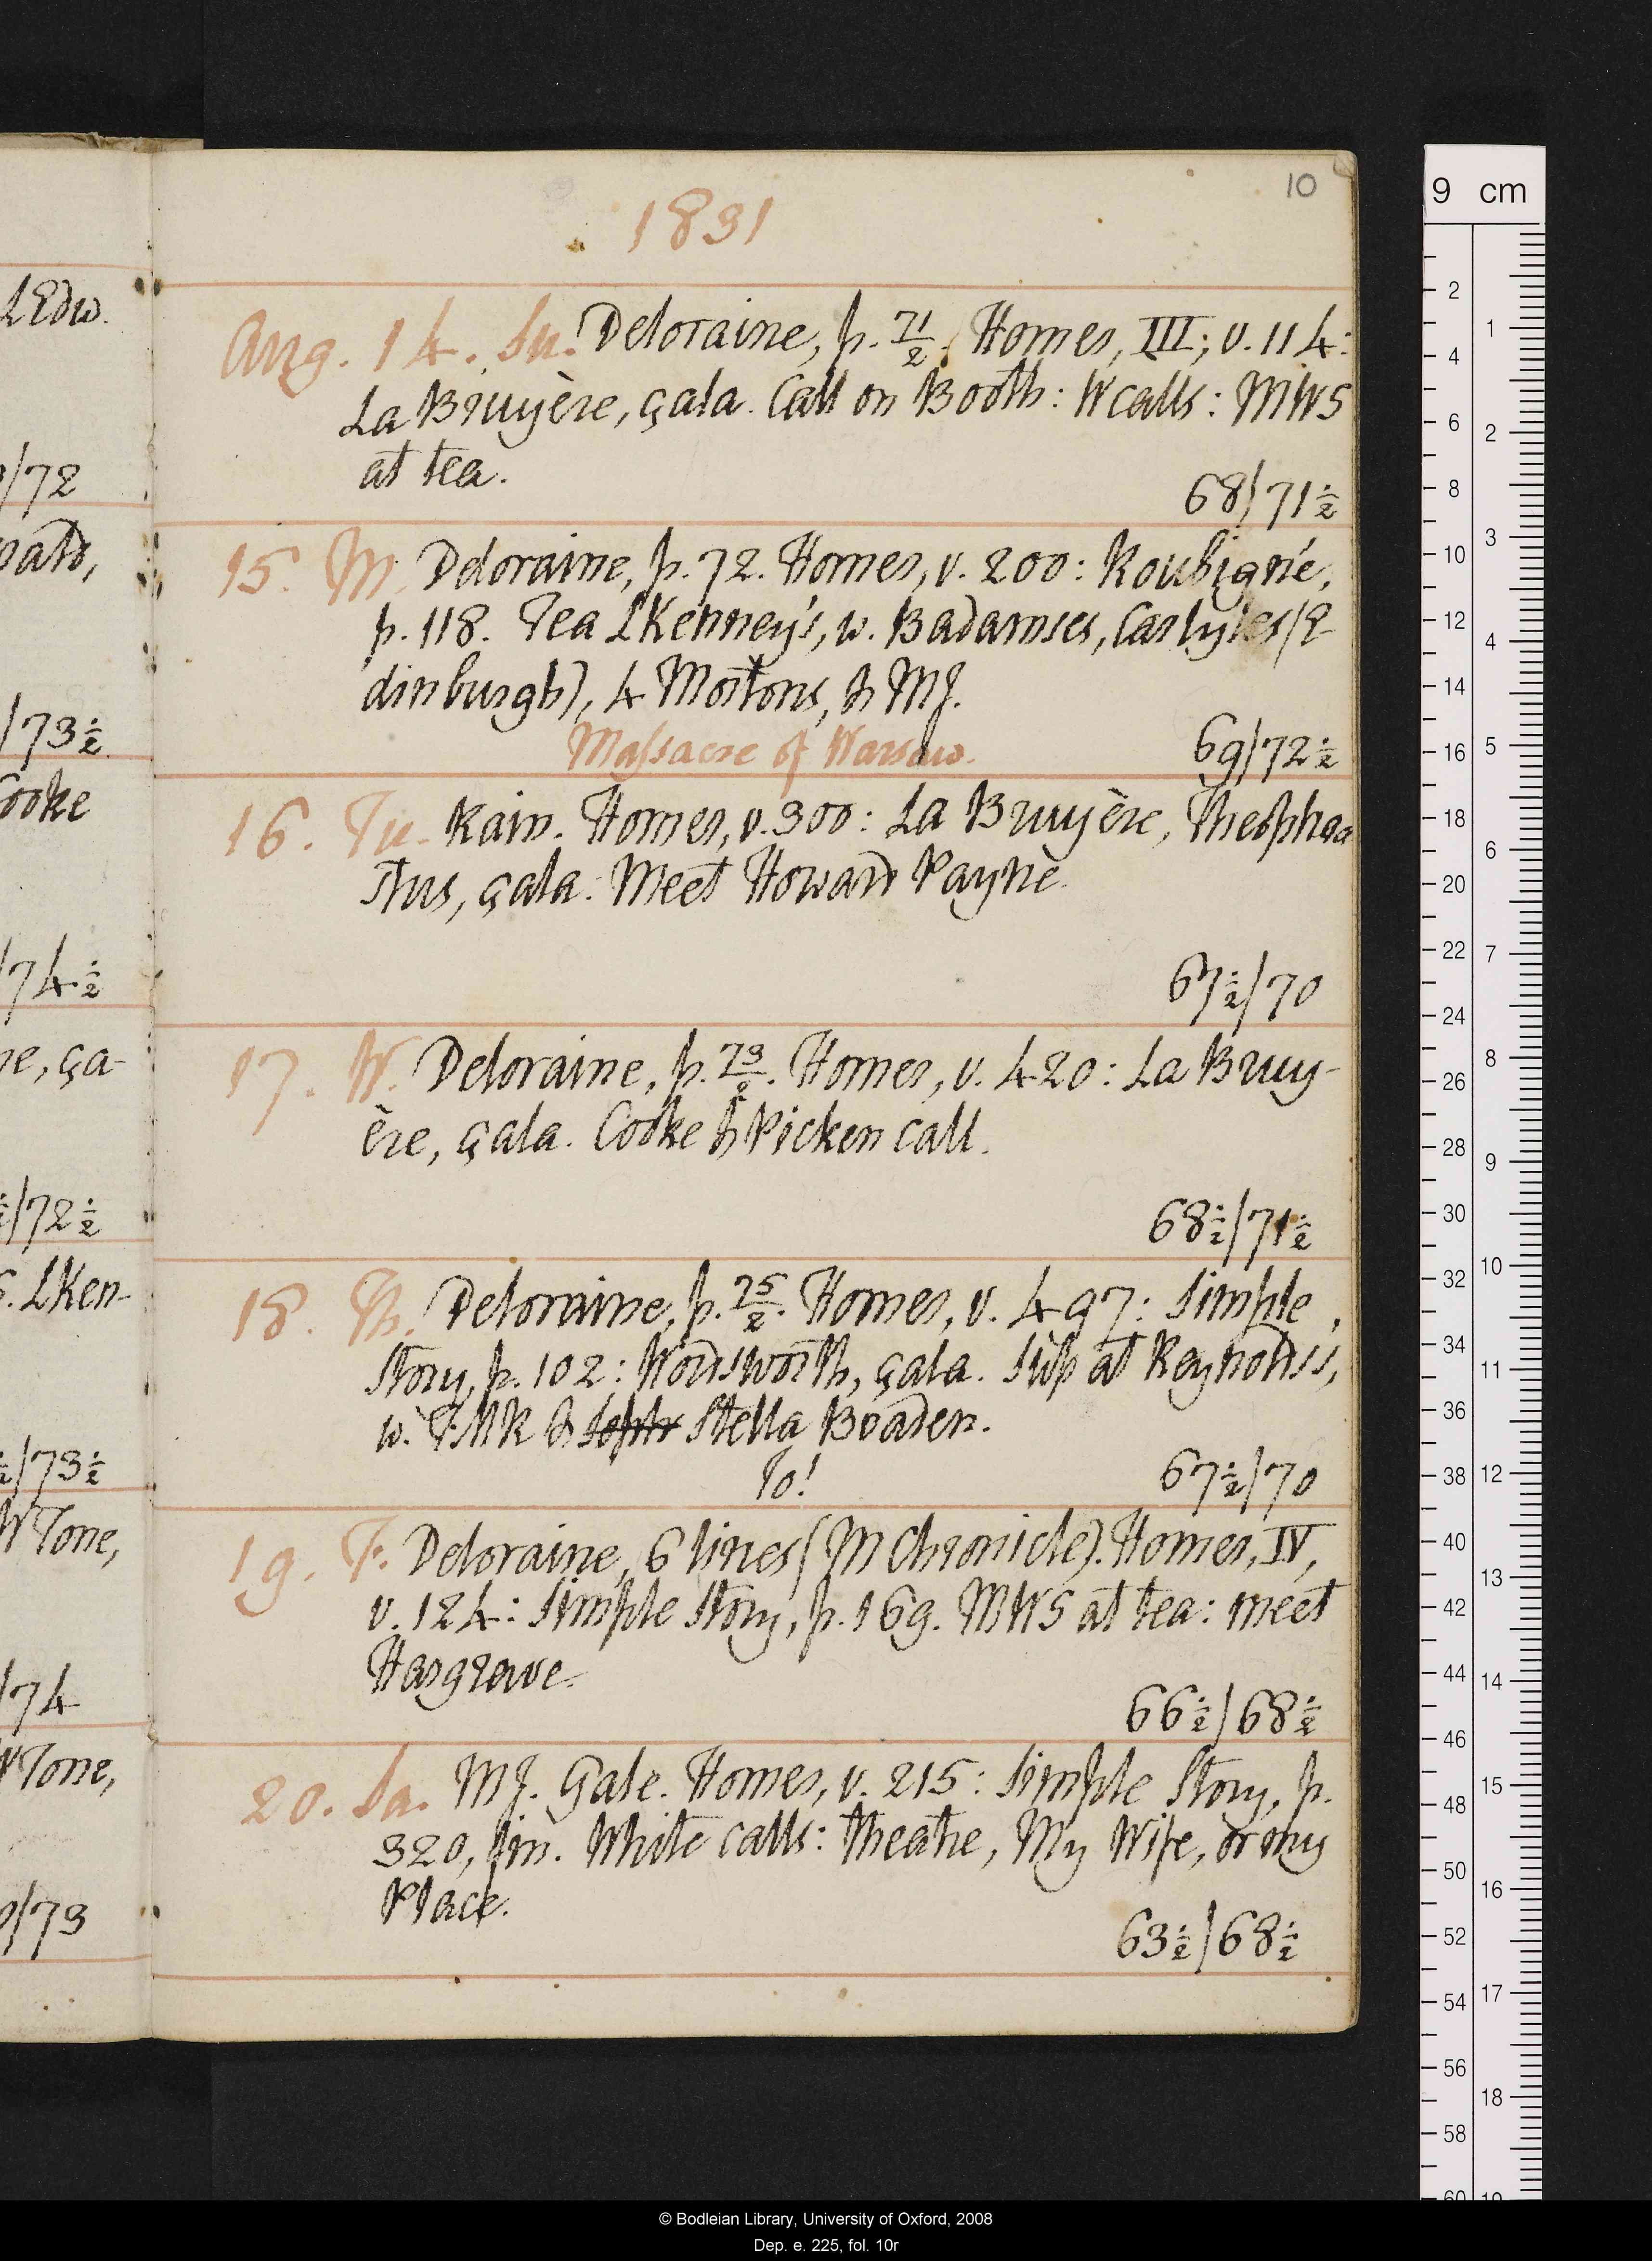 10
1831
Aug. 14. Su. Deloraine, p. 71/2. Homer, III; v. 114:
La Bruyère, çala. Call on Booth: W calls: MWS
at tea.
68/71½
15. M. Deloraine, p. 72. Homer, v. 200: Roubigné,
p. 118. Tea LKenney's, w. Badamses, Carlyles (E
dinburgh), 4 Mortons, & MJ.
Massacre of Warsaw.
69/72½
16. Tu. Rain. Homer, v. 300: La Bruyère, Theophra
stus, çala. Meet Howard Payne.
67½/70
17. W. Deloraine, p. 73/2. Homer, v. 420: La Bruy-
ère, çala. Cooke & Picken call.
68½/71½
18. Th. Deloraine, p. 75/2. Homer, v. 497: Simple
Story, p. 102: Wordsworth, çala. Sup at Reynolds's,
w. Soph Stella Boaden.
Io!
67½/70
19. F. Deloraine, 6 lines (M Chronicle). Homer, IV,
v. 124: Simple Story, p. 169. MWS at tea: meet
Hargrave.
66½/68½
20. Sa. MJ. Gale. Homer, v. 215: Simple Story, p.
320, fin. White calls: theatre, My Wife, or my
Place.
63½/68½
LEdw.
/72
/73½
Cooke
/74½
re, ça-
/72½
LKen-
/73½
W Tone,
/74
Tone,
/73
9 cm
2
4
6
8
10
12
14
16
18
20
22
24
26
28
30
32
34
36
38
40
42
44
46
48
50
52
54
56
58
60
1
2
3
4
5
6
7
8
9
10
11
12
13
14
15
16
17
18
19
© Bodleian Library, University of Oxford, 2008
Dep. e. 225, fol. 10r